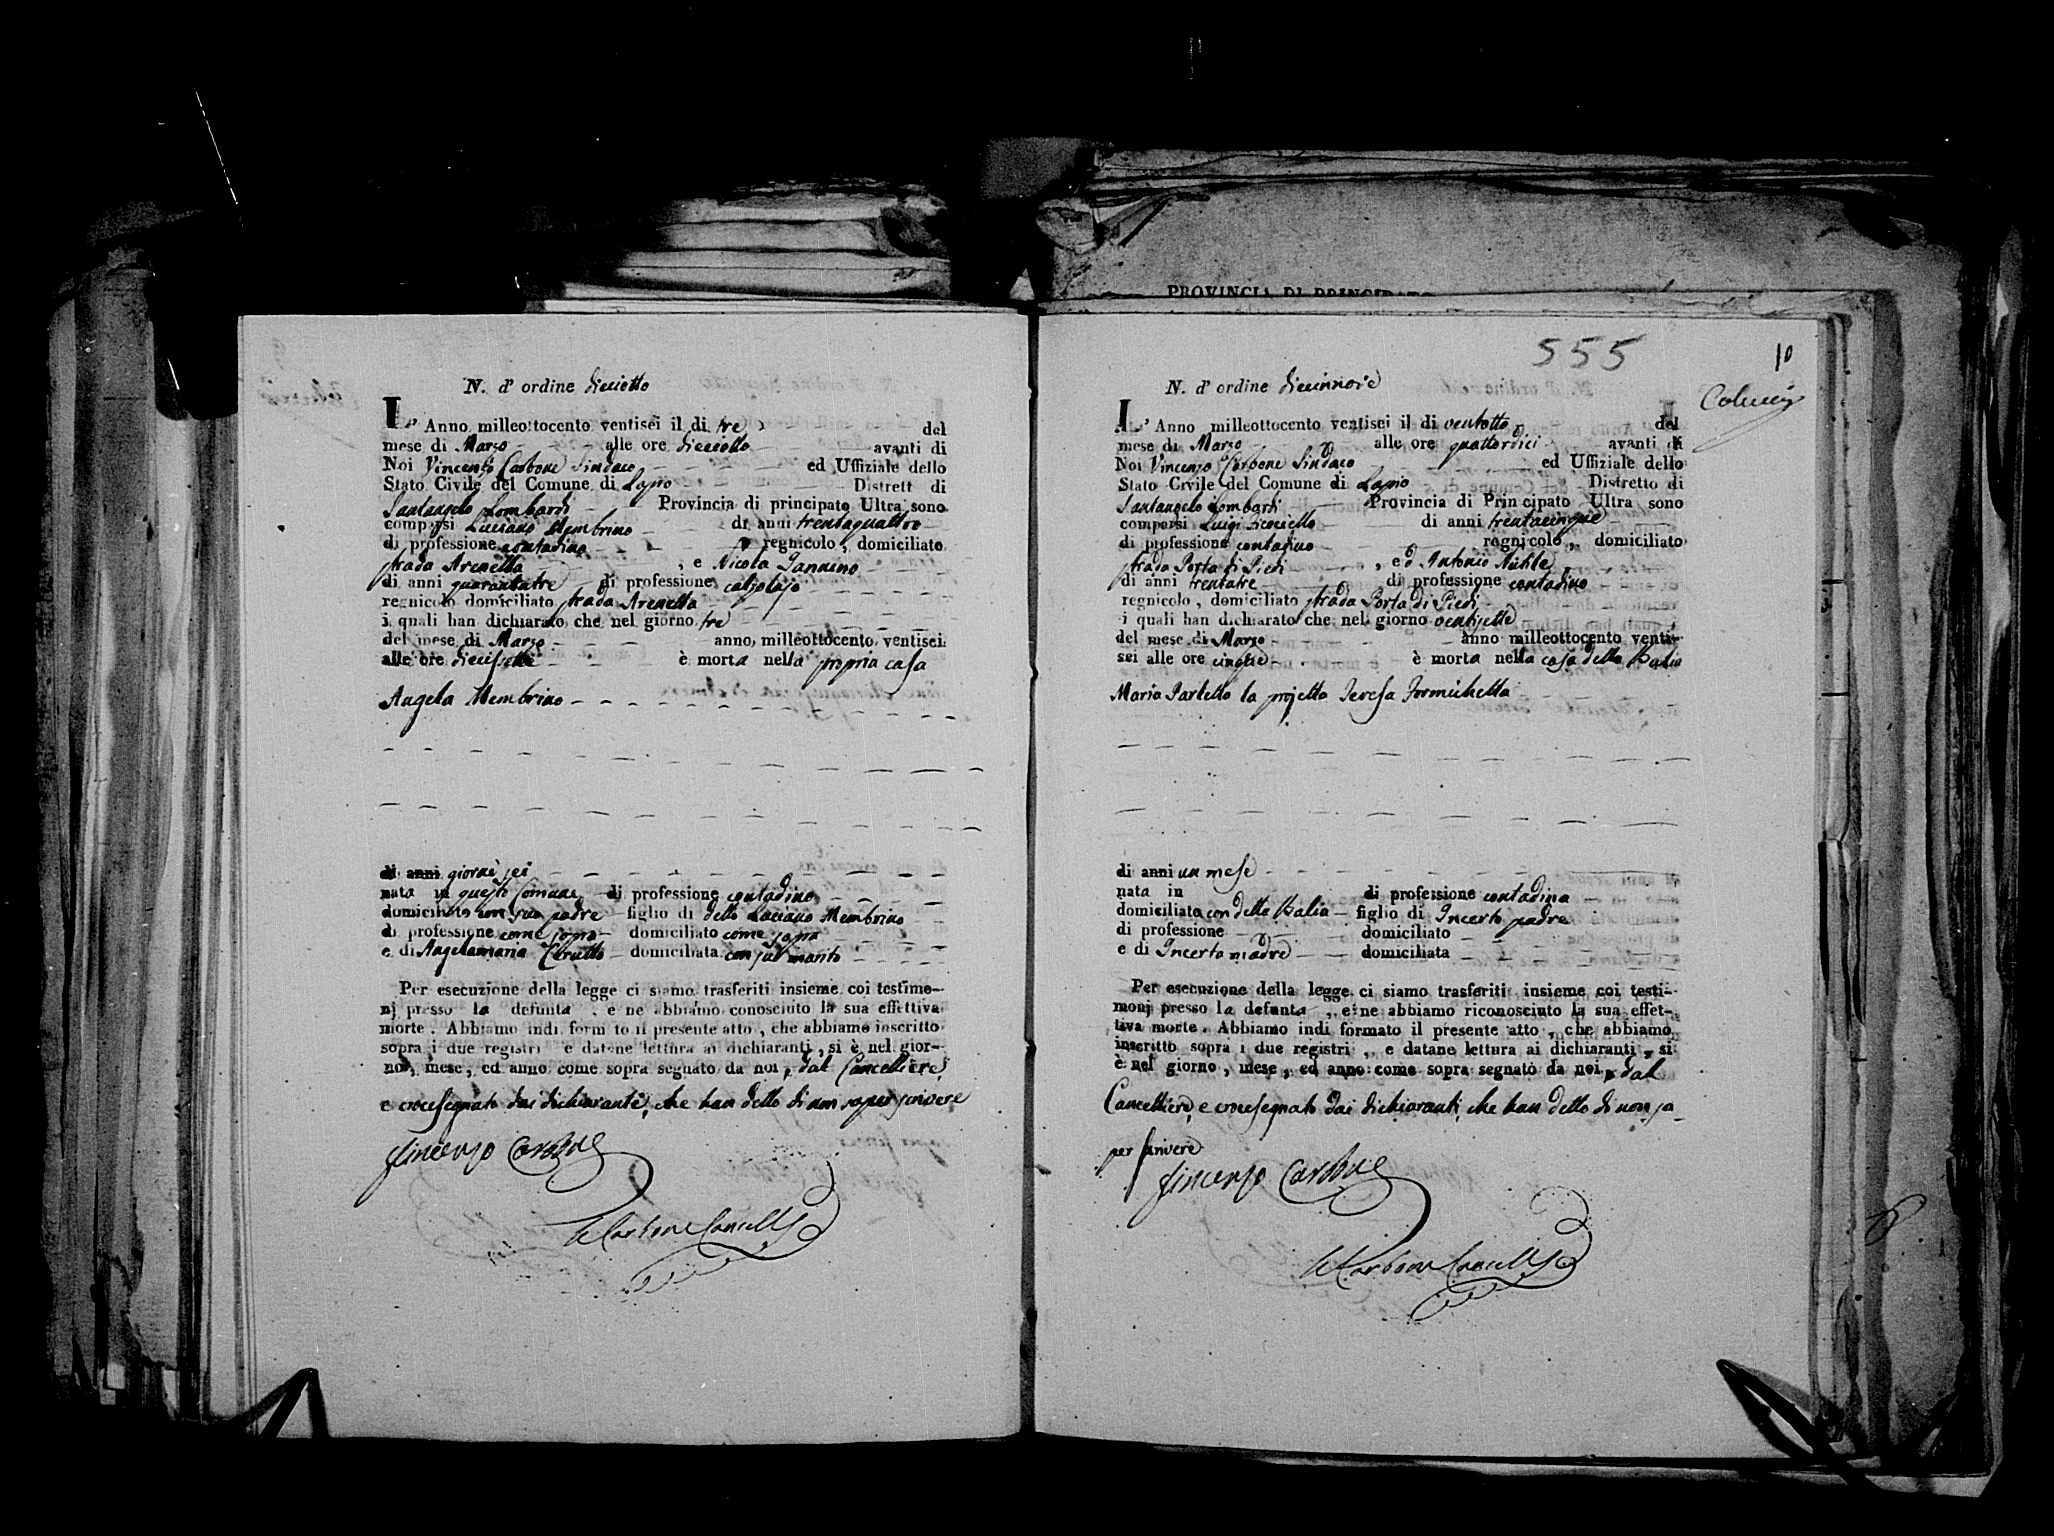 N. d' ordine diciotto
L' Anno milleottocento ventisei il di tre del
mese di Marzo alle ore diciotto avanti di
Noi Vincenzo Carbone Sindaco ed Uffiziale dello
Stato Civile del Comune di Lapio Distrett di
Santangelo Lombardi Provincia di principato Ultra sono
comparsi Luciano Membrino di anni trentaquattro
di professione contadino regnicolo, domiciliato
strada Arenella, e Nicola Iannino
di anni quarantatre di professione calzolajo
regnicolo domiciliato strada Arenella
i quali han dichiarato che nel giorno tre
del mese di Marzo anno milleottocento ventisei
alle ore diecisette è morta nella propria casa
Angela Membrino
di anni giorni sei
nata in questo Comune di professione contadina
domiciliata con suo padre figlio di detto Luciano Membrino
di professione come sopra domiciliato come sopra
e di Angelamaria domiciliata con suo marito
Per esecuzione della legge ci siamo trasferiti insieme coi testimo-
nj presso la defunta e ne abbiamo conosciuto la sua effettiva
morte. Abbiamo indi formato il presente atto, che abbiamo inscritto
sopra i due registri e datane lettura ai dichiaranti, si è nel gior-
no, mese, ed anno come sopra segnato da noi, dal Cancelliere,
e crocesegnato dai dichiaranti, che han detto di non saper scrivere
Vincenzo Carbone
Carbone Cancell
PROVINCIA DI PRINCIPATO
555
10
Colucci
N. d' ordine diecinnove
L' Anno milleottocento ventisei il di ventotto del
mese di Marzo alle ore quattordici avanti di
Noi Vincenzo Carbone Sindaco ed Uffiziale dello
Stato Civile del Comune di Lapio Distretto di
Santangelo Lombardi Provincia di Principato Ultra sono
comparsi Luigi di anni trentacinque
di professione contadino regnicolo, domiciliato
strada Porta di Piedi, ed Antonio
di anni trentatre di professione contadino
regnicolo, domiciliato strada Porta di Piedi
i quali han dichiarato che nel giorno ventisette
del mese di Marzo anno milleottocento venti-
sei alle ore cinque è morta nella casa della Balia
Maria la projetta Teresa Formichella
di anni un mese
nata in di professione contadina
domiciliata con detta Balia figlio di Incerto padre
di professione domiciliato
e di Incerta madre domiciliata
Per esecuzione della legge ci siamo trasferiti insieme coi testi-
monj presso la defunta, e ne abbiamo riconosciuto la sua effet-
tiva morte. Abbiamo indi formato il presente atto, che abbiamo
inscritto sopra i due registri, e datane lettura ai dichiaranti, si
è nel giorno, mese, ed anno come sopra segnato da noi, dal
Cancelliere, e crocesegnato dai dichiaranti, che han detto di non sa-
per scrivere
Vincenzo Carbone
Carbone Cancell